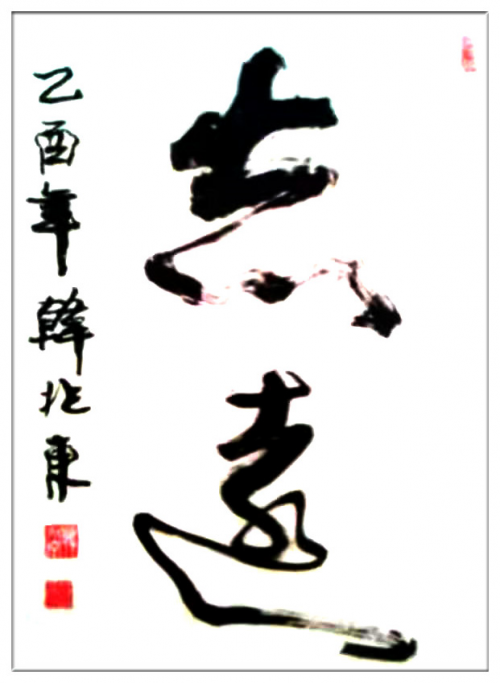 志遠
乙酉年韓北東